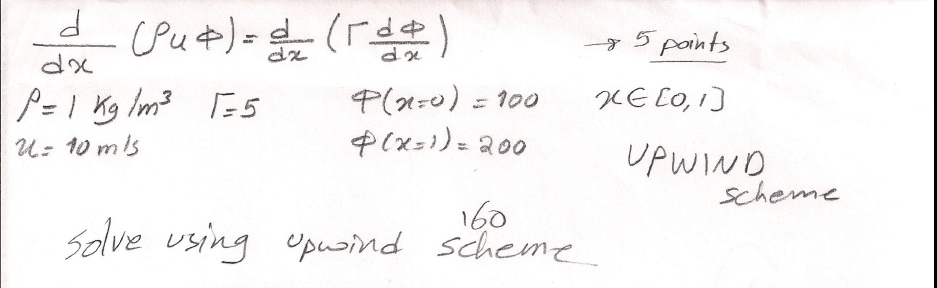 d/dx (ρuΦ) = d/dx (Γ dΦ/dx) → 5 points
ρ = 1 Kg/m³ Γ = 5 Φ(x=0) = 100 x ∈ [0,1]
u = 10 m/s Φ(x=1) = 200 UPWIND
scheme
160
Solve using upwind scheme